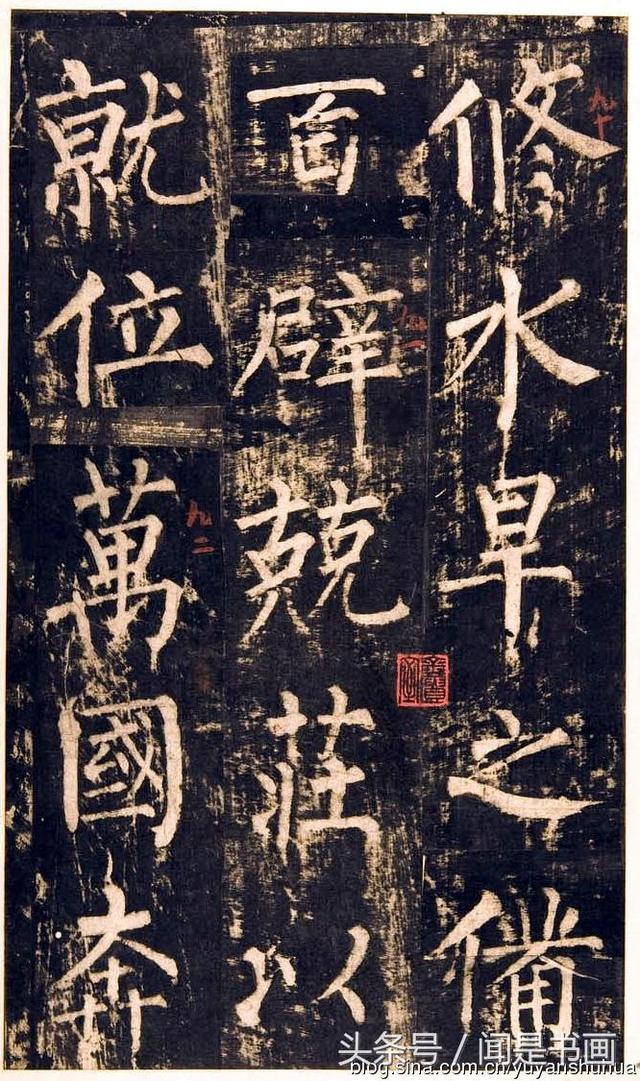 修水旱之備
九十
百辟兢莊以
九一
就位萬國奔
九二
头条号 / 闻是书画
blog.sina.com.cn/yuyanshuhua